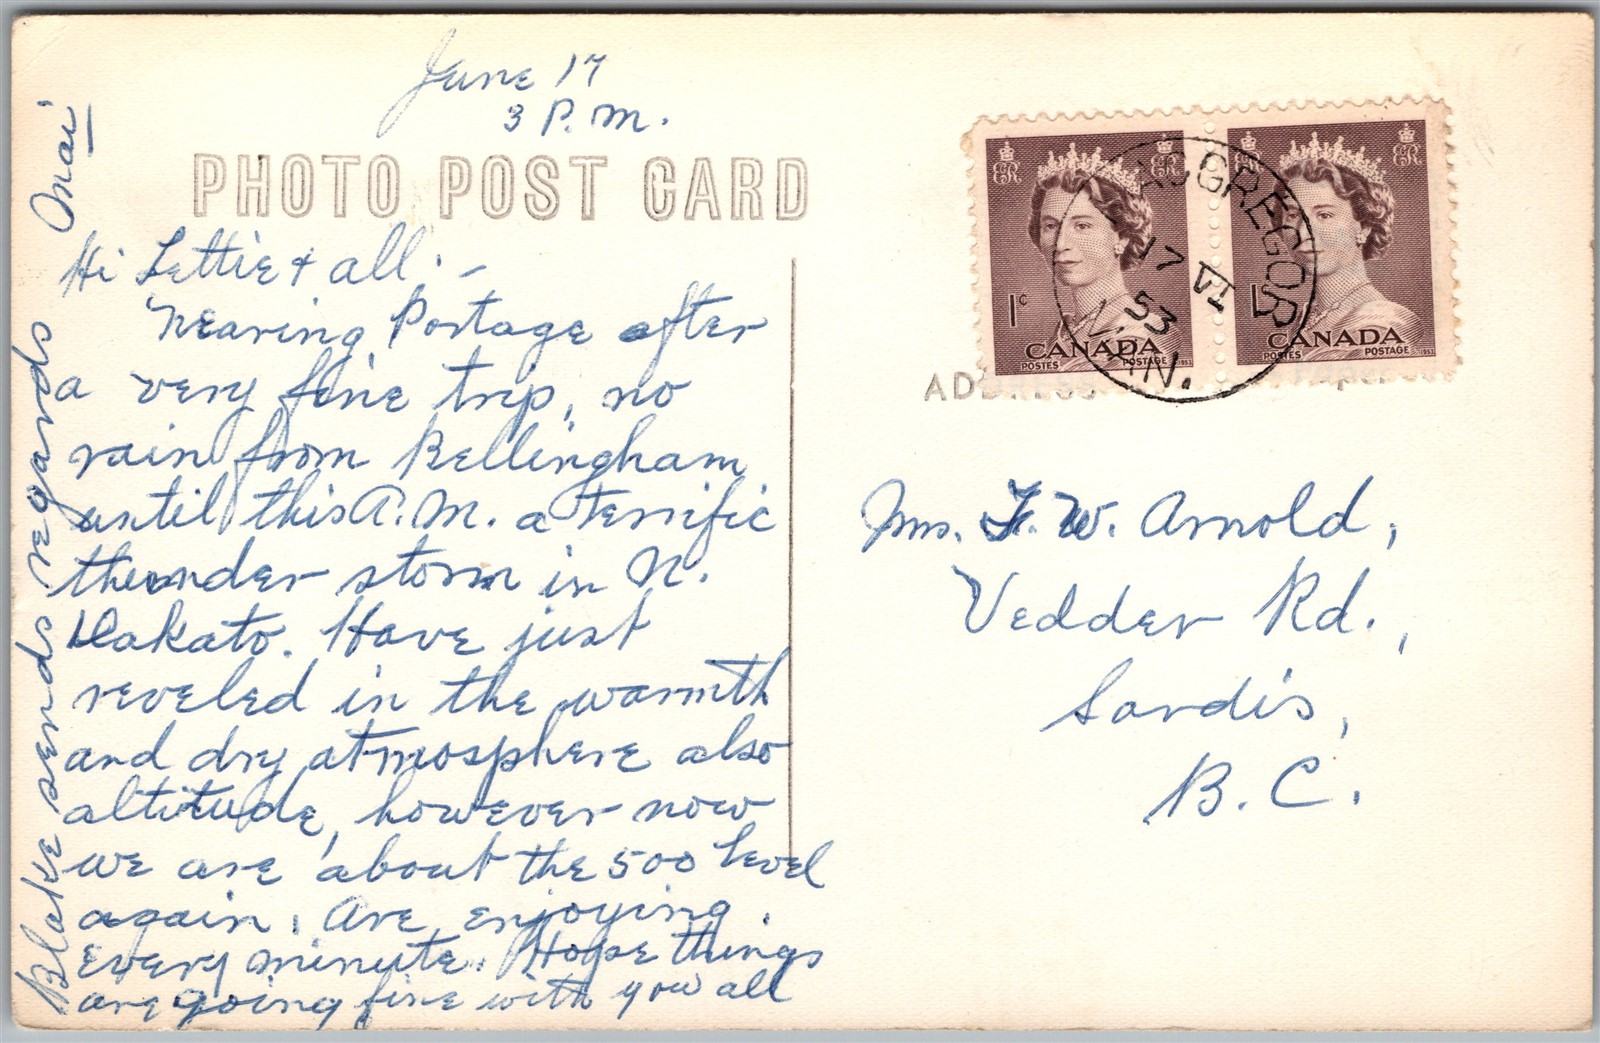 June 17
3 P.M.
PHOTO POST CARD
Hi Lettie & all. -
Nearing Portage after
a very fine trip, no
rain from Bellingham
until this A.M. a terrific
thounder storm in N.
Dakato. Have just
reveled in the warmth
and dry atmosphere also
altitude, however now
we are about the 500 level
again. Are enjoying
every minute. Hope things
are going fine with you all
Blake sends regards
Omai
ER ER
1c
CANADA
POSTES POSTAGE 1953
ER ER
1
CANADA
POSTES POSTAGE 1953
MACGREGOR
17 VI
53
MAN.
ADDRESS
Mrs. F. W. Arnold,
Vedder Rd.,
Sardis,
B.C.